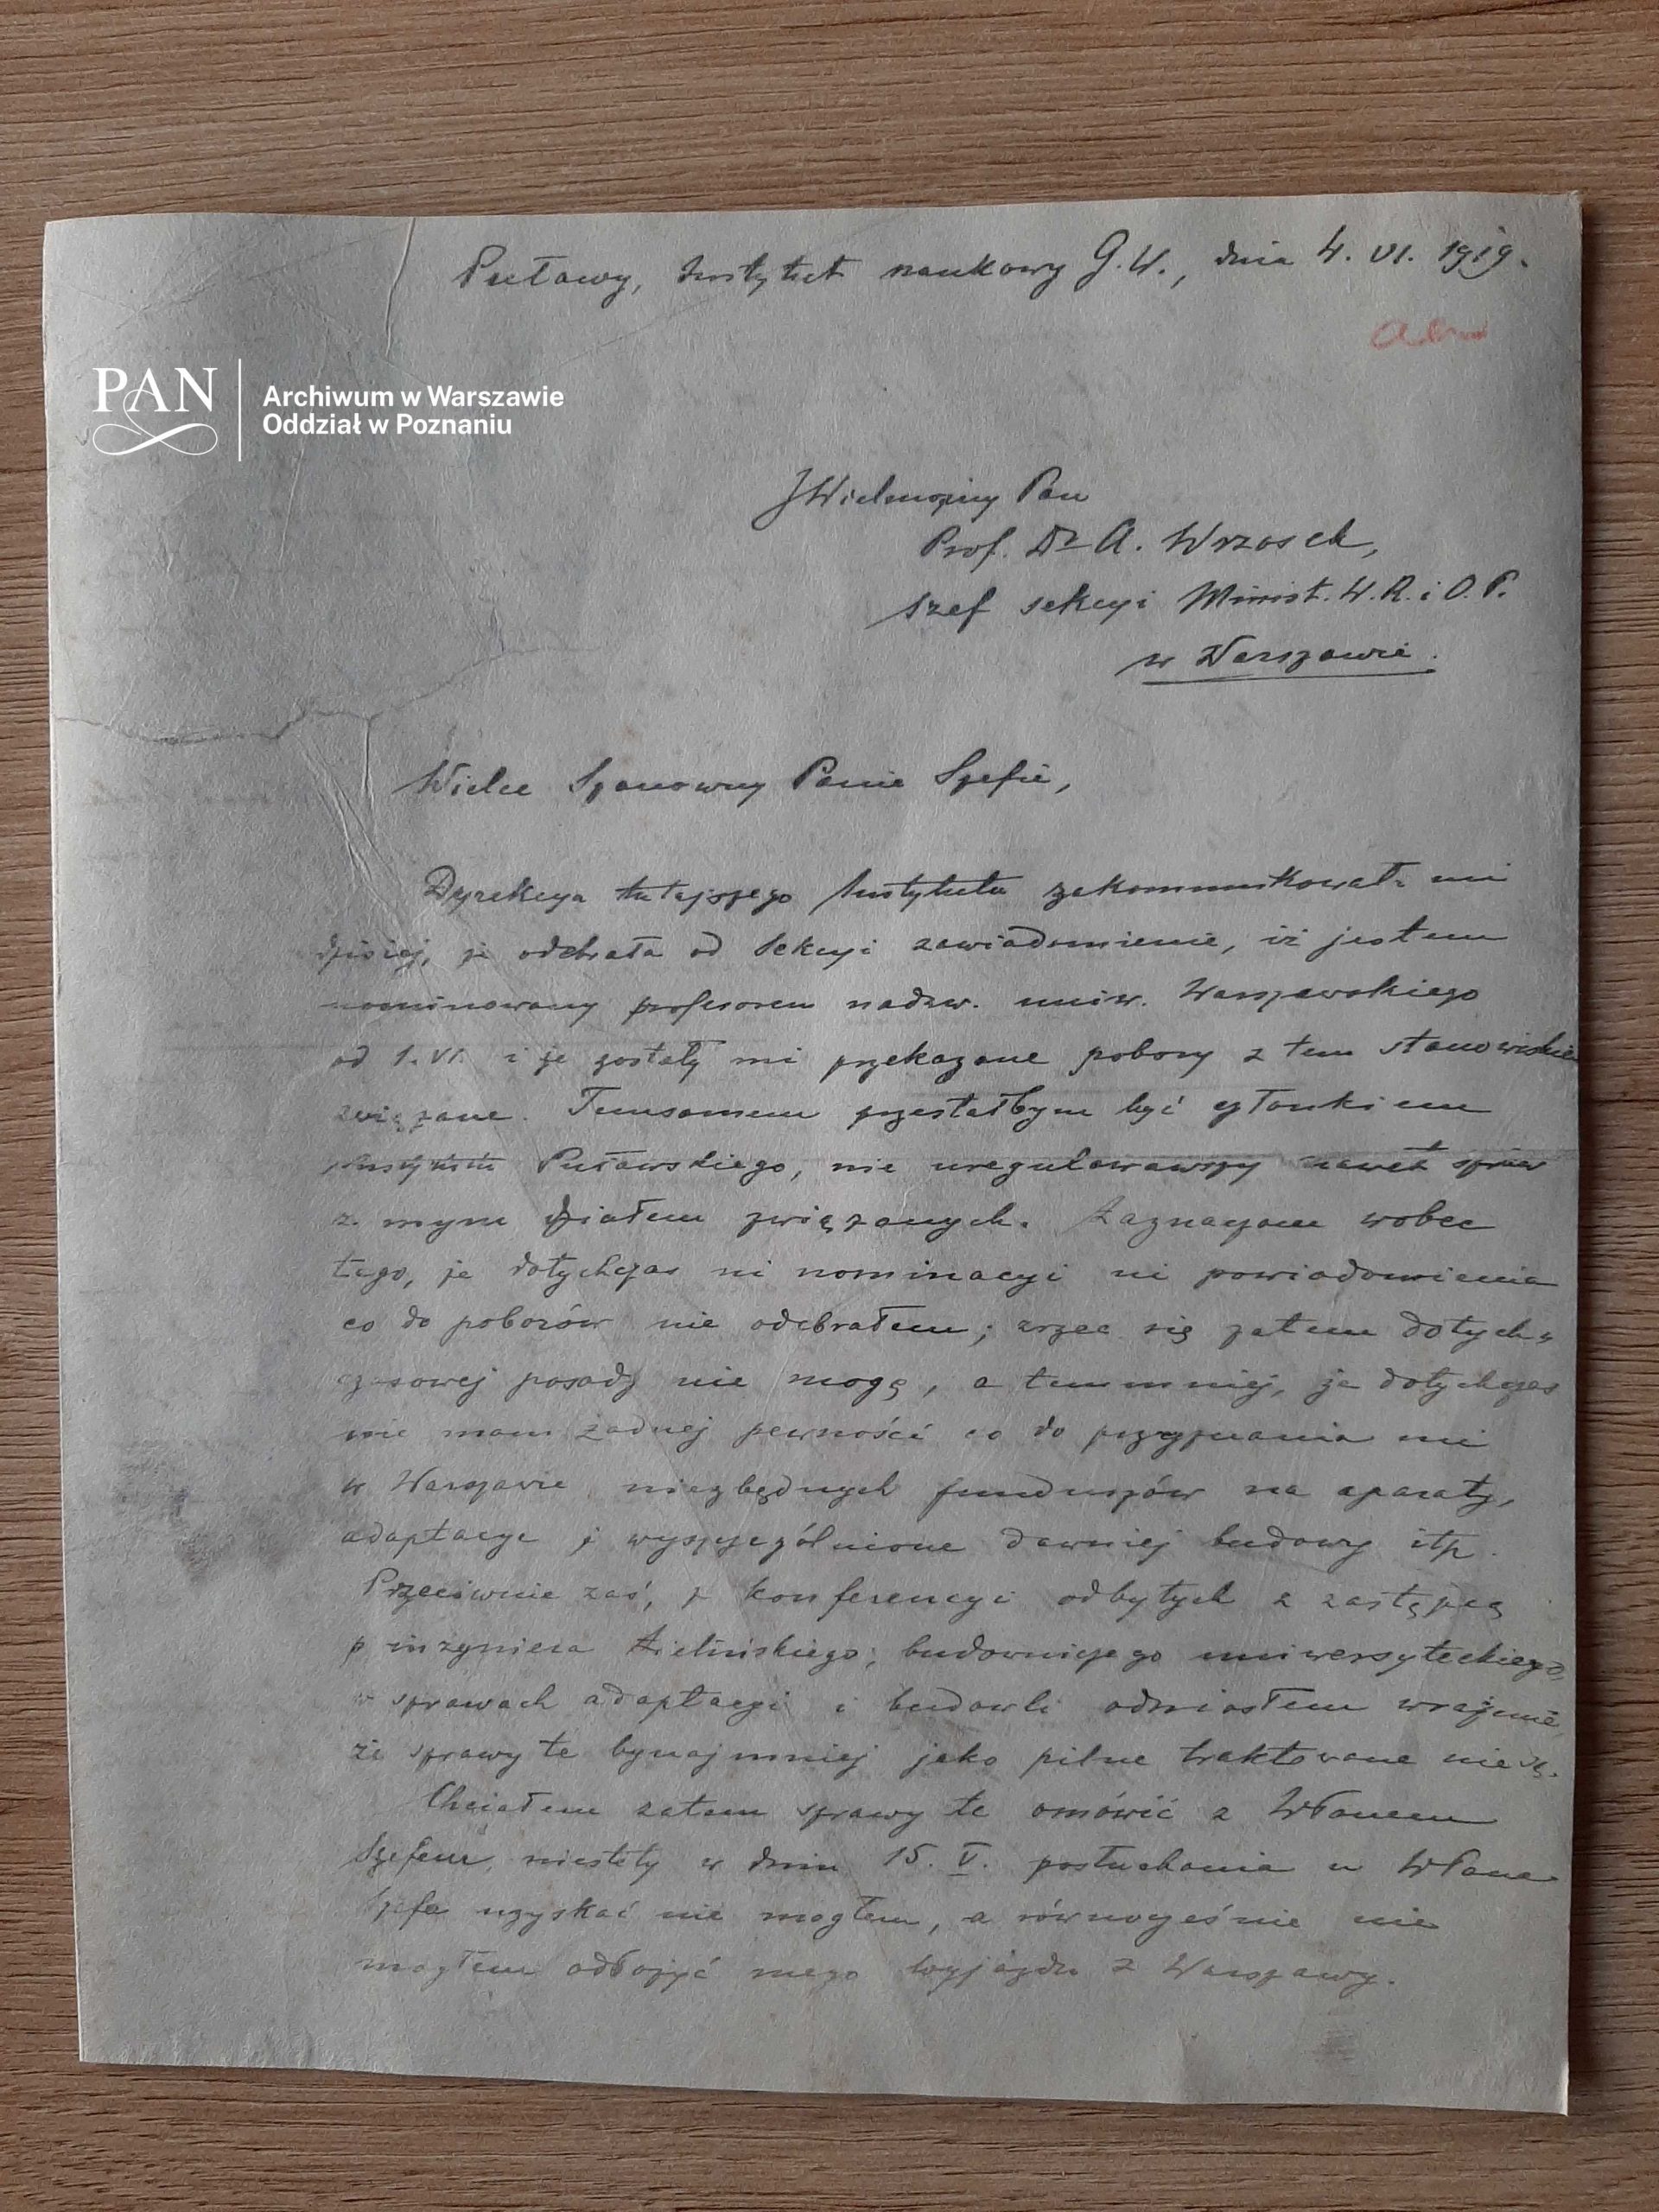 Puławy, Instytut naukowy G.W., dnia 4. VI. 1919.
PAN
Archiwum w Warszawie
Oddział w Poznaniu
JWielmożny Pan
Prof. Dr A. Wrzosek,
szef sekcyi Minist. W.R. i O.P.
w Warszawie.
Wielce Szanowny Panie Szefie,
Dyrekcya tutejszego Instytutu zakommunikowała mi
dzisiaj, że odebrała od Sekcyi zawiadomienie, iż jestem
nominowany profesorem nadzw. uniw. Warszawskiego
od 1. VI. i że zostały mi przekazane pobory z tem stanowiskiem
związane. Temsamem przestałbym być członkiem
Instytutu Puławskiego, nie uregulowawszy nawet spraw
z mym działem związanych. Zaznaczam wobec
tego, że dotychczas ni nominacyi ni powiadomienia
co do poborów nie odebrałem; zrzec się zatem dotych-
czasowej posady nie mogę, a temmniej, że dotychczas
nie mam żadnej pewności co do przyznania mi
w Warszawie niezbędnych funduszów na aparaty,
adaptacye i wyszczególnione dawniej budowy itp.
Przeciwnie zaś, z konferencyi odbytych z zastępcą
p. inżyniera Zielińskiego, budowniczego uniwersyteckiego,
w sprawach adaptacyi i budowli odniosłem wrażenie,
że sprawy te bynajmniej jako pilne traktowane nie są.
Chciałem zatem sprawy te omówić z WPanem
Szefem, niestety w dniu 15. V. posłuchania u WPana
Szefa uzyskać nie mogłem, a równocześnie nie
mogłem odłożyć mego wyjazdu z Warszawy.